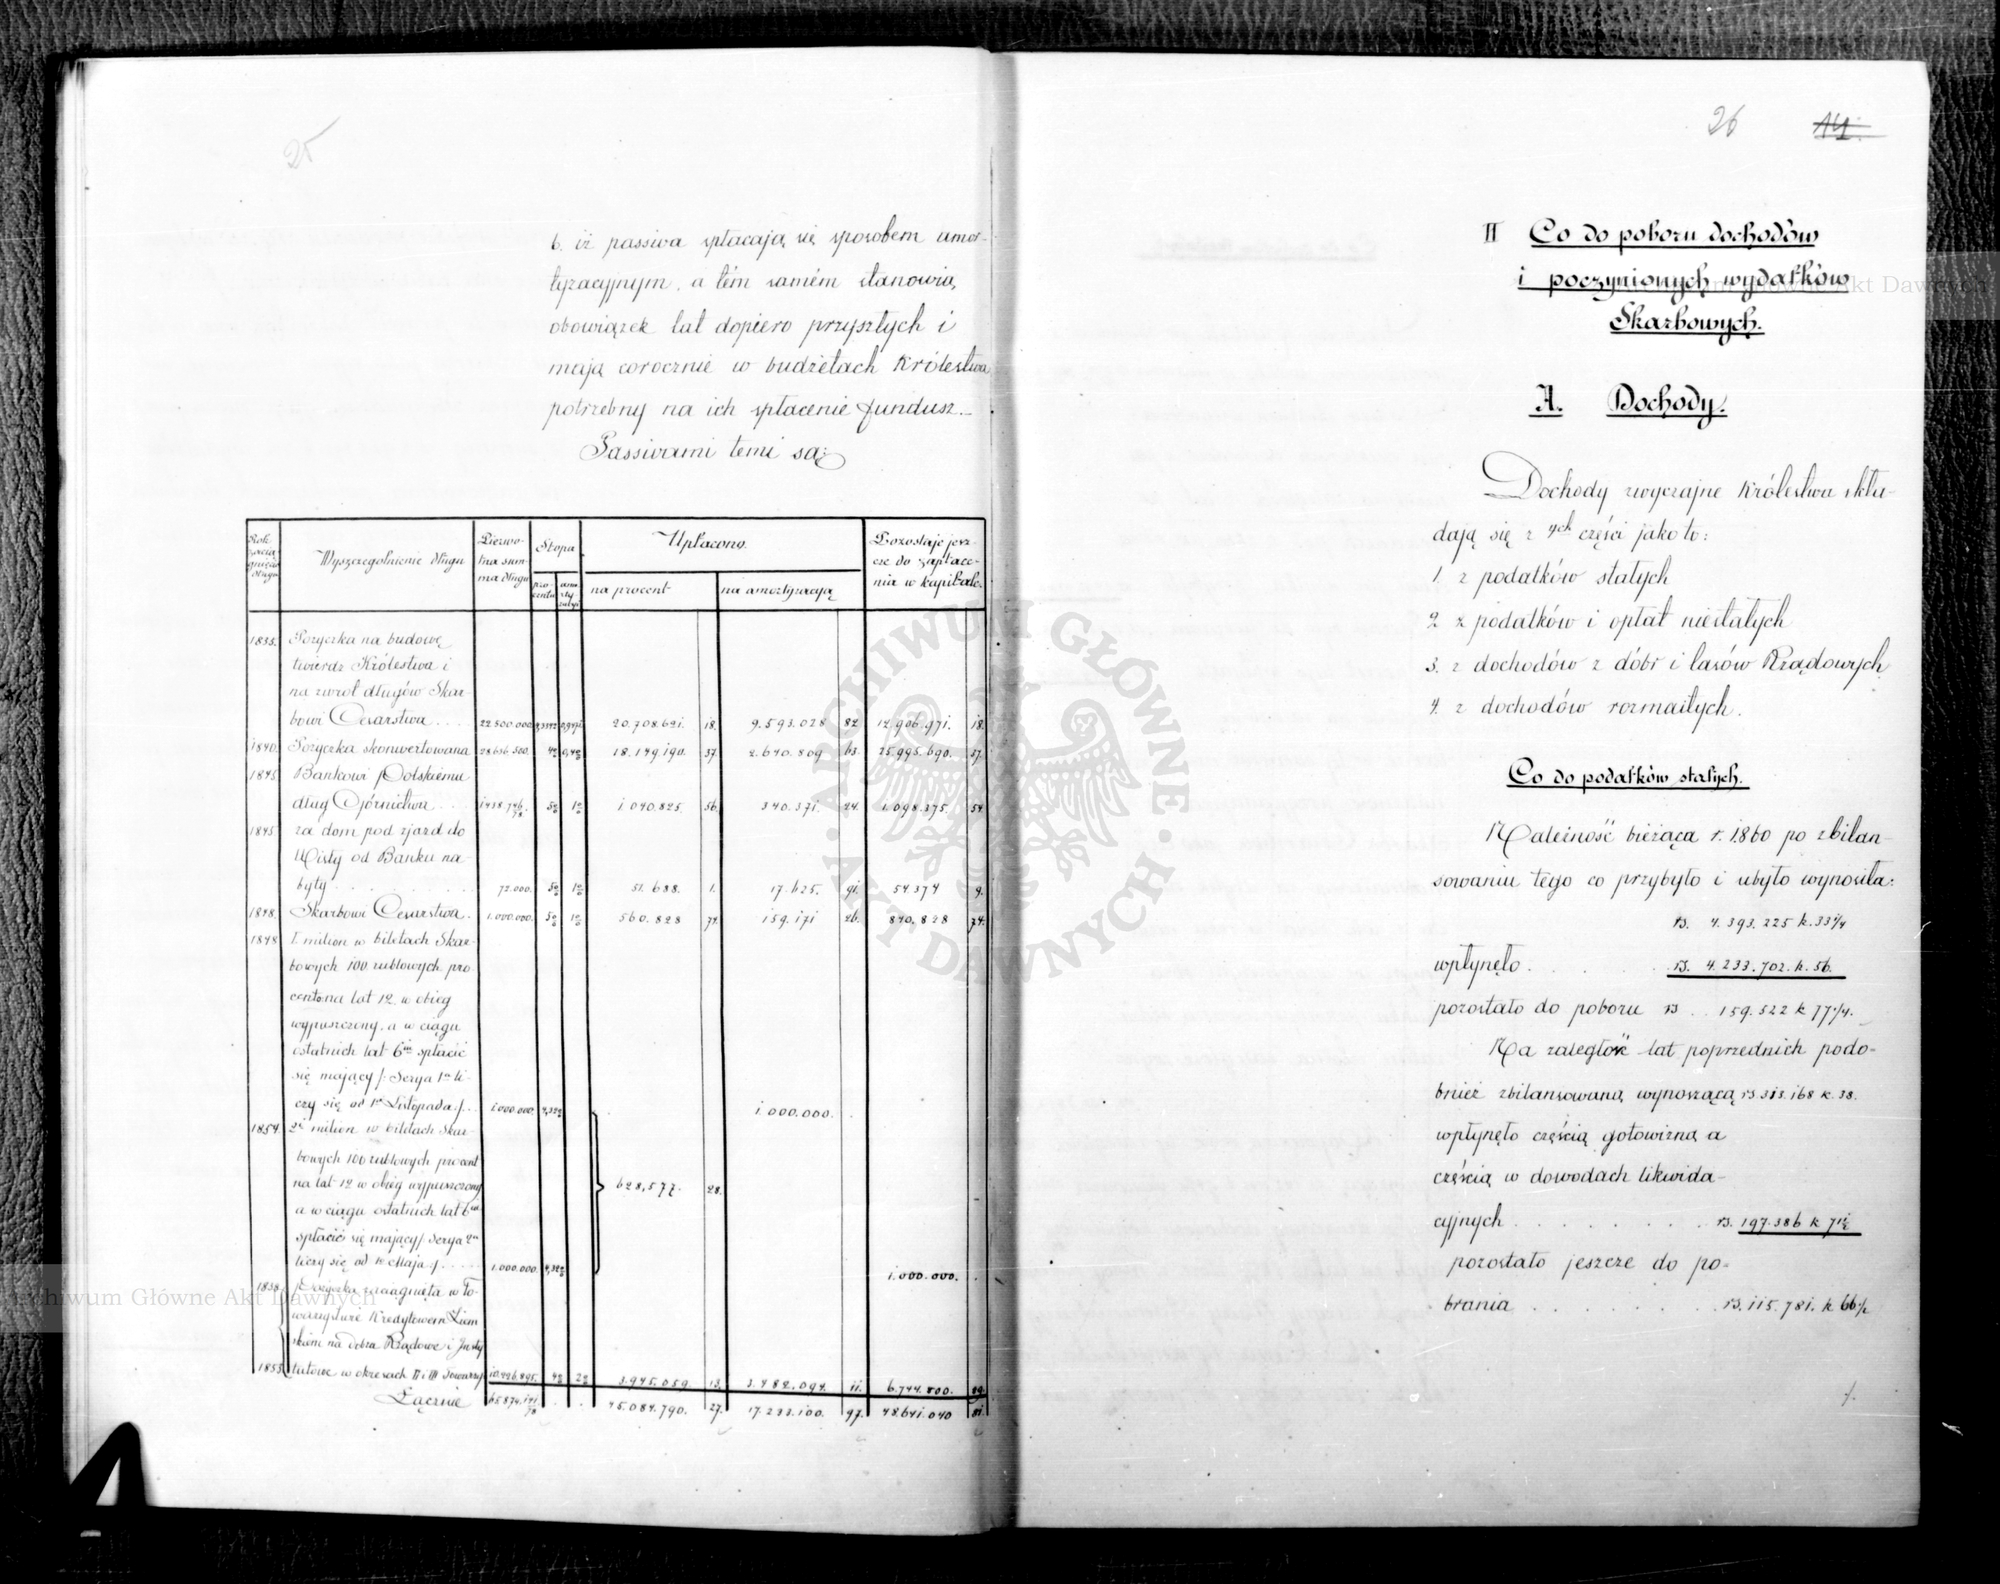 25
6. iż passiva spłacają się sposobem amor-
tyzacyjnym, a tém samém stanowią
obowiązek lat dopiero przyszłych i
mają corocznie w budżetach Królestwa
potrzebny na ich spłacenie fundusz.
Passivami temi są:
Rok zacią-gnięcia długu
Wyszczególnienie długu
Pierwo-tna sum-ma długu
Stopa
pro-centu
amor-tyzacyi
Upłacono.
na procent
na amortyzacją
Pozostaje jesz-cze do zapłace-nia w kapitale.
1835. Pożyczka na budowę
twierdz Królestwa i
na zwrot długów Skar-
bowi Cesarstwa 22.500.000. 20.708.621. 18. 9.593.028 82 12.906.971. 18.
1840. Pożyczka skonwertowana 18.149.190. 57. 2.640.809 63. 25.995.690. 37.
1845 Bankowi Polskiemu
dług Górnictwa 1.040.825 56. 340.371. 24. 1.098.375. 54
1845 za dom pod zjazd do
Wisły od Banku na-
byty 72.000. 51.688. 1. 17.625. 91. 54.374 9.
1848. Skarbowi Cesarstwa. 1.000.000. 560.828 74. 159.171 26. 840.828 74.
1848 1. milion w biletach Skar-
bowych 100 rublowych pro-
centem na lat 12 w obieg
wypuszczony, a w ciągu
ostatnich lat 6ciu spłacić
się mający /: Serya 1a li-
czy się od 1go Listopada./ 1.000.000. 1.000.000.
1854. 2i milion w biletach Skar-
bowych 100 rublowych procent
na lat 12 w obieg wypuszczony
a w ciągu ostatnich lat 6ciu
spłacić się mający/. Serya 2a
liczy się od 1go Maja./ 1.000.000. 628,577. 28. 1.000.000.
1838 Pożyczka zaciągnięta w To-
warzystwie Kredytowem Ziem-
skiem na dobra Rządowe i Insty-
1853 tutowe w okresach II i III Towarzy 10.426.895. 3.945.059. 13. 3.482.094. 11. 6.744.800. 29.
Łącznie 45.084.790. 27. 17.233.100. 97. 48.641.040 81.
26
14.
II Co do poboru dochodów
i poczynionych wydatków
Skarbowych.
A. Dochody.
Dochody zwyczajne Królestwa skła-
dają się z 4ch części jako to:
1. z podatków stałych
2 z podatków i opłat niestałych
3. z dochodów z dóbr i lasów Rządowych
4. z dochodów rozmaitych.
Co do podatków stałych.
Należność bieżąca r. 1860 po zbilan-
sowaniu tego co przybyło i ubyło wynosiła:
rs. 4.393.225 k. 33 1/4
wpłynęło rs. 4.233.702. k. 56.
pozostało do poboru rs 159.522 k 77 1/4.
Na zaległość lat poprzednich podo-
bnież zbilansowaną wynoszącą rs 313.168 k. 38.
wpłynęło częścią gotowizną a
częścią w dowodach likwida-
cyjnych rs. 197.386 k 71 1/2
pozostało jeszcze do po-
brania rs. 115.781. k 66 1/2
ARCHIWUM GŁÓWNE AKT DAWNYCH
Archiwum Główne Akt Dawnych